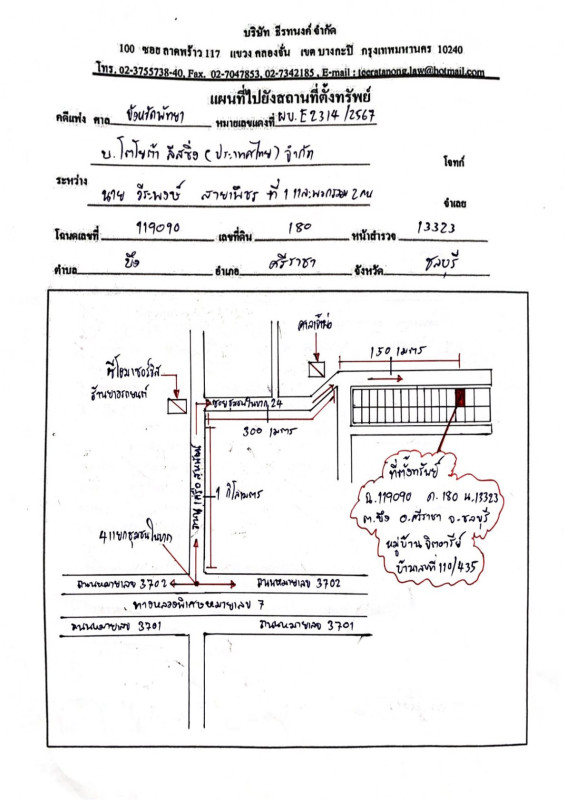 บริษัท ธีรทนงค์ จำกัด
100 ซอย ลาดพร้าว 117 แขวง คลองจั่น เขต บางกะปิ กรุงเทพมหานคร 10240
โทร. 02-3755738-40, Fax. 02-7047853, 02-7342185 , E-mail : teeratanong.law@hotmail.com
แผนที่ไปยังสถานที่ตั้งทรัพย์
คดีแพ่ง ศาล จังหวัดพัทยา หมายเลขแดงที่ ผบ.E2314/2567
บ.โตโยต้า ลีสซิ่ง (ประเทศไทย) จำกัด โจทก์
ระหว่าง
นาย วีระพงษ์ สายเพ็ชร ที่ 1 และพวกรวม 2 คน จำเลย
โฉนดเลขที่ 119090 เลขที่ดิน 180 หน้าสำรวจ 13323
ตำบล บึง อำเภอ ศรีราชา จังหวัด ชลบุรี
ศาลเจ้าพ่อ
150 เมตร
ร้านยางรถยนต์
ซอยชุมชนในนาก 24
300 เมตร
1 กิโลเมตร
4 แยกชุมชนในนาก
ที่ตั้งทรัพย์
ฉ.119090 ด.180 น.13323
ต.บึง อ.ศรีราชา จ.ชลบุรี
หมู่บ้าน จิตอารีย์
บ้านเลขที่ 110/435
ถนนหมายเลข 3702 ถนนหมายเลข 3702
ทางหลวงพิเศษหมายเลข 7
ถนนหมายเลข 3701 ถนนหมายเลข 3701